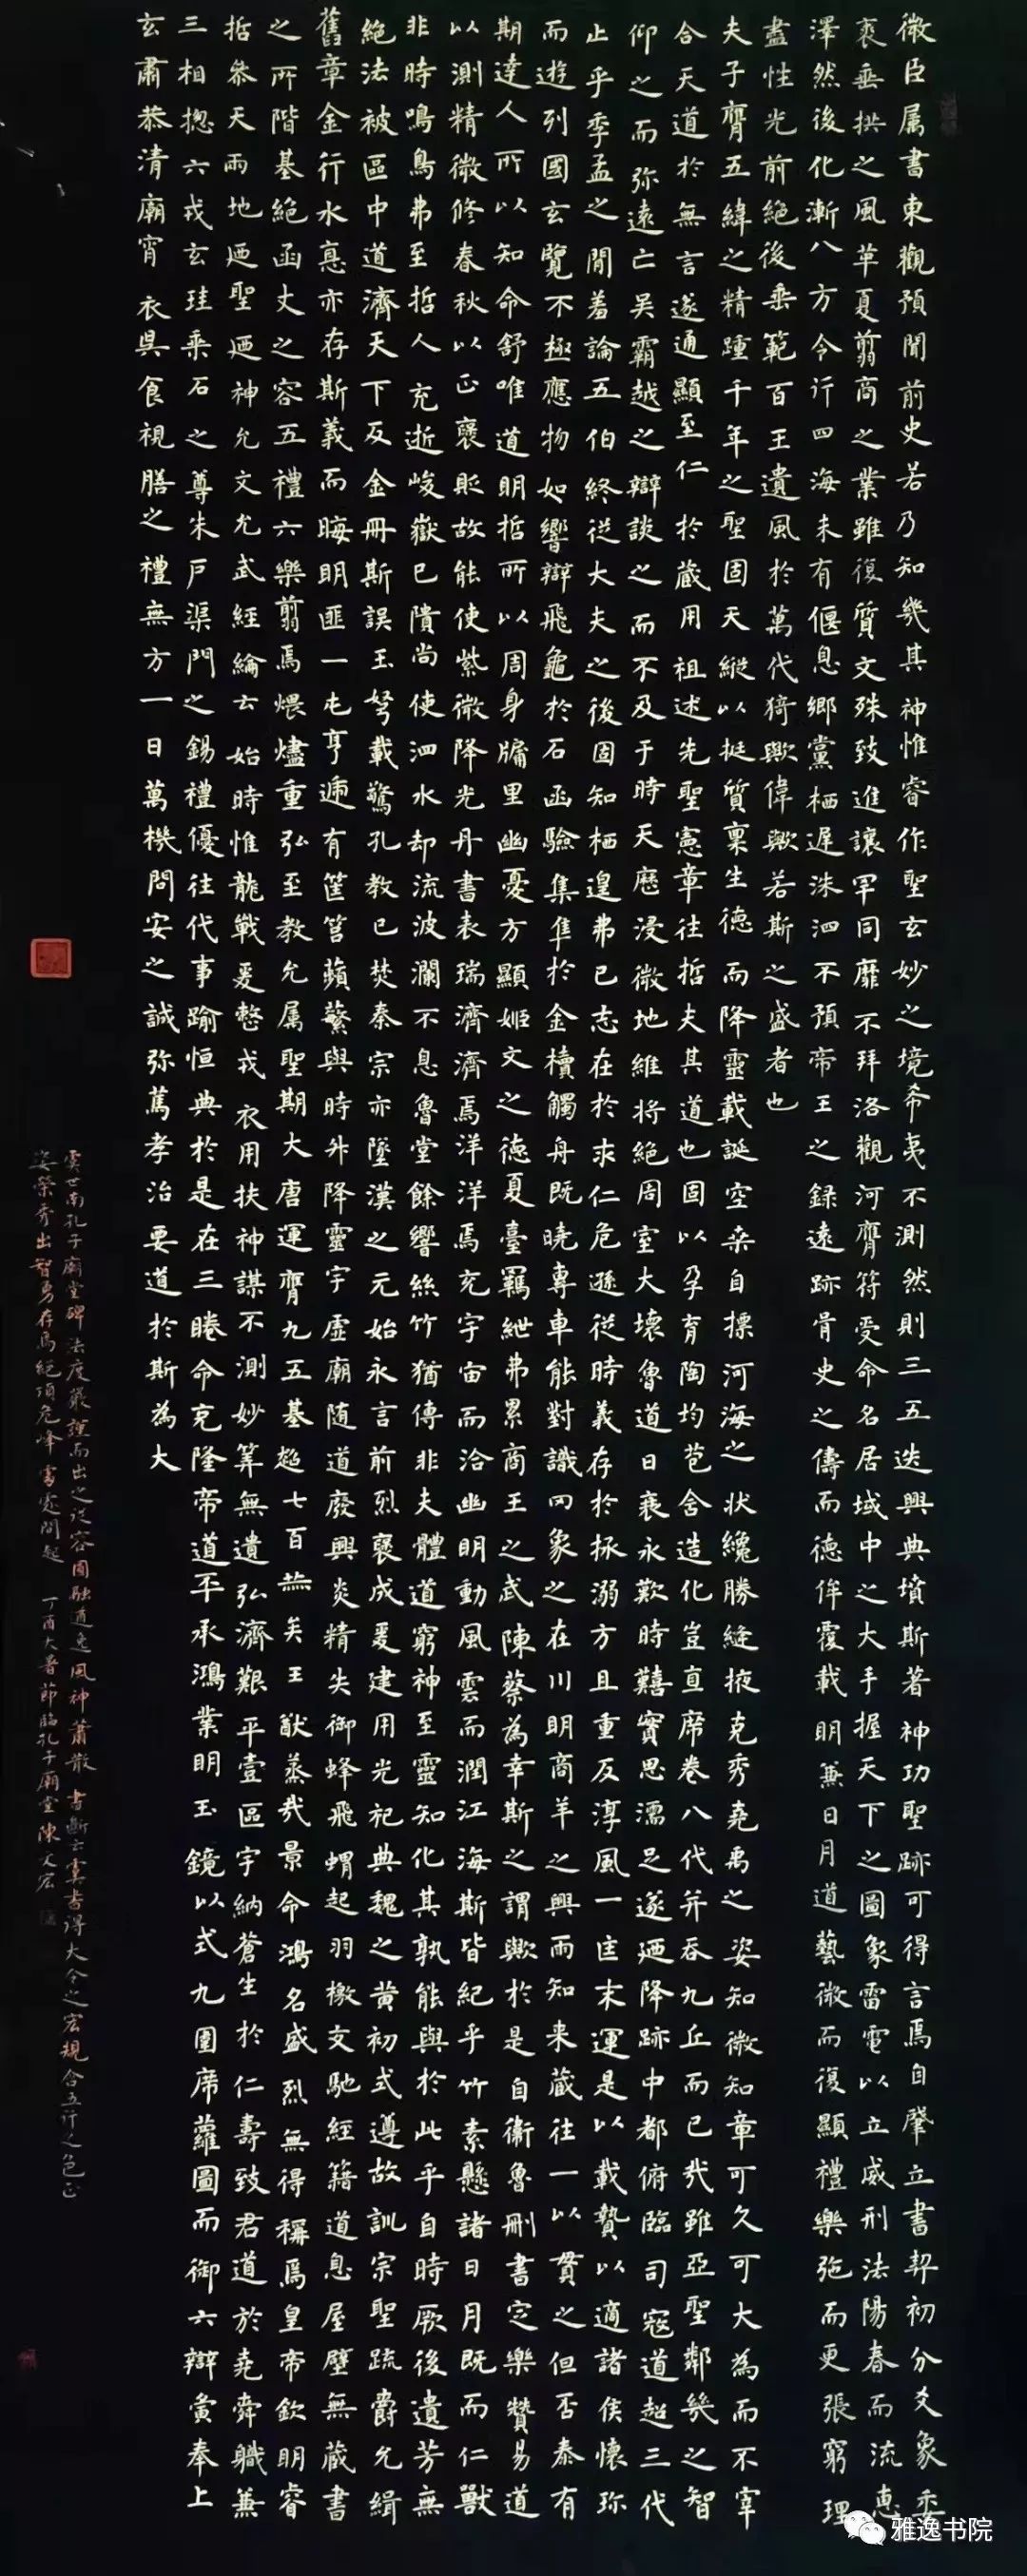 微臣属書東觀預聞前史若乃知幾其神惟睿作聖玄妙之境希夷不測然則三五迭興典墳斯著神功聖跡可得言焉自肇立書契初分爻象委
裘垂拱之風革夏翦商之業雖復質文殊致進讓罕同靡不拜洛觀河膺符受命名居域中之大手握天下之圖象雷電以立威刑法陽春而流恵
澤然後化漸八方令行四海未有偃息鄉黨栖遲洙泗不預帝王之録遠跡胥史之儔而德侔覆載明兼日月道藝微而復顯禮樂弛而更張窮理
盡性光前絕後垂範百王遺風於萬代猗歟偉歟若斯之盛者也
夫子膺五緯之精踵千年之聖固天縱以挺質稟生德而降靈載誕空桒自摽河海之状纔勝縫掖克秀堯禹之姿知微知章可久可大為而不宰
合天道於無言遂通顯至仁於蔵用祖述先聖憲章往哲夫其道也固以孕育陶均苞含造化豈直席卷八代并吞九丘而已哉雖亞聖鄰幾之智
仰之而弥遠亡吴霸越之辯談之而不及于時天歷浸微地維将絕周室大壞魯道日衰永歎時囏實思濡足遂迺降跡中都俯臨司寇道超三代
止乎季孟之閒羞論五伯終從大夫之後固知栖遑弗已志在於求仁危遜從時義存於拯溺方且重反淳風一匡末運是以載贄以適諸侯懷珎
而遊列國玄覽不極應物如響辯飛龜於石函驗集隼於金櫝觸舟既曉專車能對識罔象之在川明商羊之興雨知来蔵往一以貫之但否泰有
期達人所以知命舒唯道明哲所以周身牖里幽憂方顯姬文之德夏臺羈紲弗累商王之武陳蔡為幸斯之謂歟於是自衛魯刪書定樂贊易道
以測精微修春秋以正襃貶故能使紫微降光丹書表瑞濟濟焉洋洋焉充宇宙而洽幽明動風雲而潤江海斯皆紀乎竹素懸諸日月既而仁獸
非時鳴鳥弗至哲人充逝峻嶽已隤尚使泗水却流波瀾不息魯堂餘響絲竹猶傳非夫體道窮神至靈知化其孰能與於此乎自時厥後遺芳無
絕法被區中道濟天下及金冊斯誤玉弩載驚孔教已焚秦宗亦墜漢之元始永言前烈襃成爰建用光祀典魏之黄初式遵故訓宗聖疏爵允緝
舊章金行水悳亦存斯義而晦明匪一屯亨逓有筐筥蘋蘩與時升降靈宇虛廟随道廢興炎精失御蜂飛蝟起羽檄交馳經籍道息屋壁無蔵書
之所階基絕函丈之容五禮六樂翦焉煨燼重弘至教允属聖期大唐運膺九五基超七百赫矣王猷蒸哉景命鴻名盛烈無得稱焉皇帝欽明睿
哲叅天兩地迺聖迺神允文允武經綸云始時惟龍戰爰整戎衣用扶神謀不測妙筭無遺弘濟艱平壹區宇納蒼生於仁壽致君道於堯舜職兼
三相揔六戎玄珪乘石之尊朱戶渠門之錫禮優往代事踰恒典於是在三眷命克隆帝道丕承鴻業明玉鏡以式九圍席蘿圖而御六辯寅奉上
玄肅恭清廟宵衣昃食視膳之禮無方一日萬機問安之誠弥篤孝治要道於斯為大
虞世南孔子廟堂碑法度嚴謹而出之從容圓融遒逸風神蕭散書斷云虞書得大令之宏規含五行之色正
姿榮秀出智勇存焉絕頂危峰處處間起丁酉大暑節臨孔子廟堂陳文宏
雅逸书院